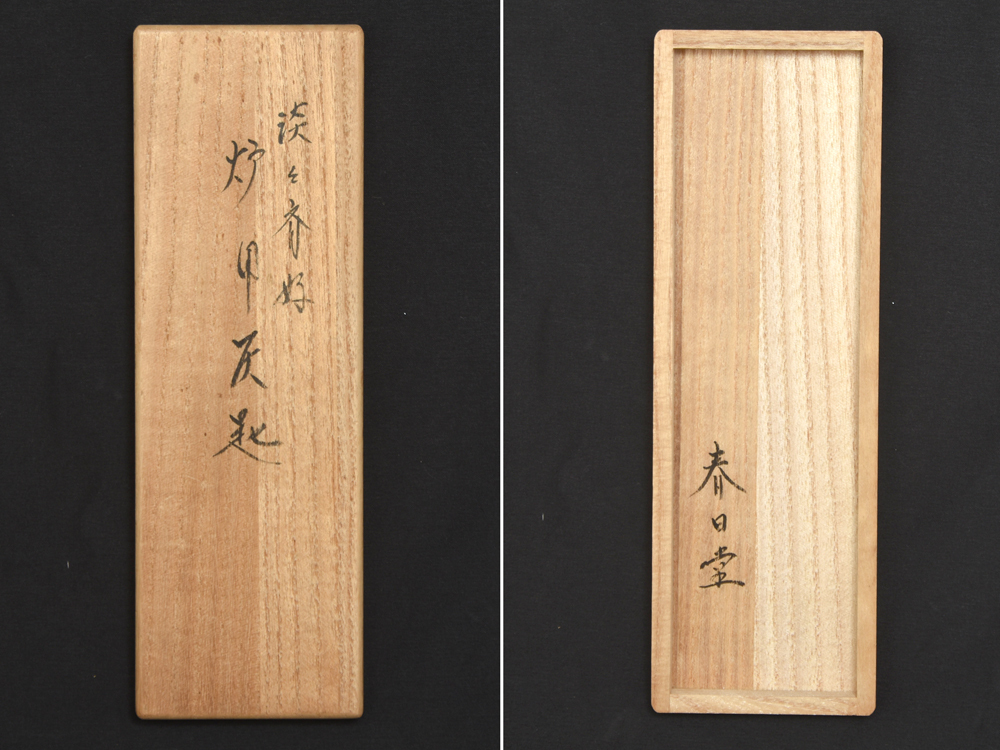 淡々斎好
炉用灰匙
春日堂